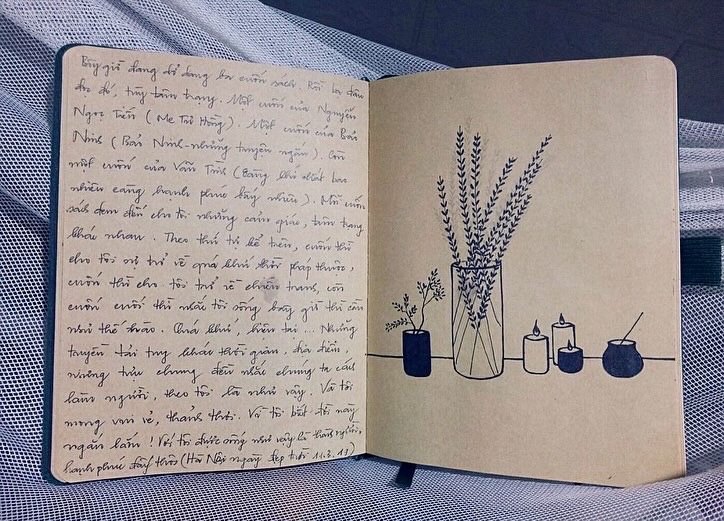 Bây giờ đang dở dang ba cuốn sách. Rồi ba đầu
đọc đó, tùy tâm trạng. Một cuốn của Nguyễn
Ngọc Tiến (Me Tư Hồng). Một cuốn của Bảo
Ninh (Bảo Ninh - những truyện ngắn). Còn
một cuốn của Vãn Tình (Càng khó khăn bao
nhiêu càng hạnh phúc bấy nhiêu). Mỗi cuốn
sách đem đến cho tôi những cảm giác, tâm trạng
khác nhau. Theo thứ tự kể trên, cuốn thì
cho tôi trở về quá khứ thời pháp thuộc,
cuốn thì cho tôi trở về chiến tranh, còn
cuốn cuối thì nhắc tôi sống bây giờ thì cần
như thế nào. Quá khứ, hiện tại... Những
truyện tải tuy khác thời gian, địa điểm,
nhưng chung đều nhắc chúng ta cách
làm người, theo tôi là như vậy. Và tôi
mong vui vẻ, thảnh thơi. Vì tôi biết đời này
ngắn lắm! Với tôi được sống như vậy là
hạnh phúc đấy thôi (Hà Nội ngày đẹp trời 11.3.19)